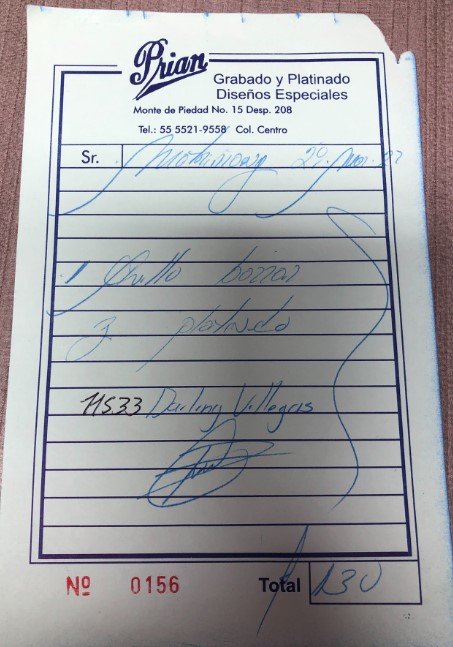 Prian
Grabado y Platinado
Diseños Especiales
Monte de Piedad No. 15 Desp. 208
Tel.: 55 5521-9558 Col. Centro
Sr. 29
1 borrar
y platinado
11533 Darling Villegas
Nº 0156 Total 130